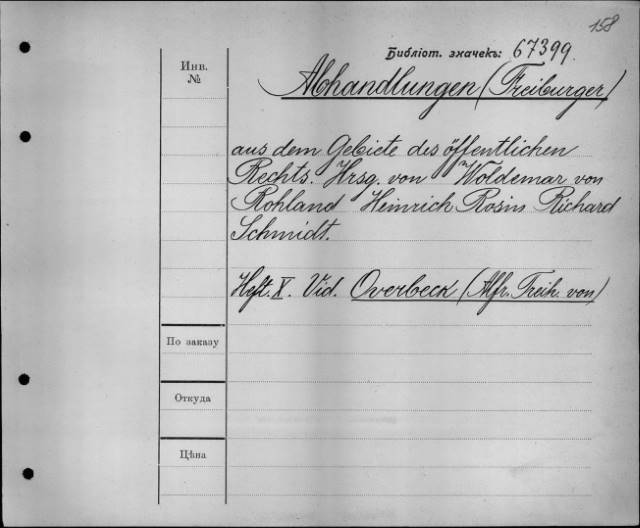 158
Библіот. значекъ: 67399.
Инв.
№
Abhandlungen (Freiburger)
aus dem Gebiete des öffentlichen
Rechts. Hrsg. von Woldemar von
Rohland Heinrich Rosin Richard
Schmidt.
Heft. X. Vid. Overbeck (Alfr. Freih. von)
По заказу
Откуда
Цѣна